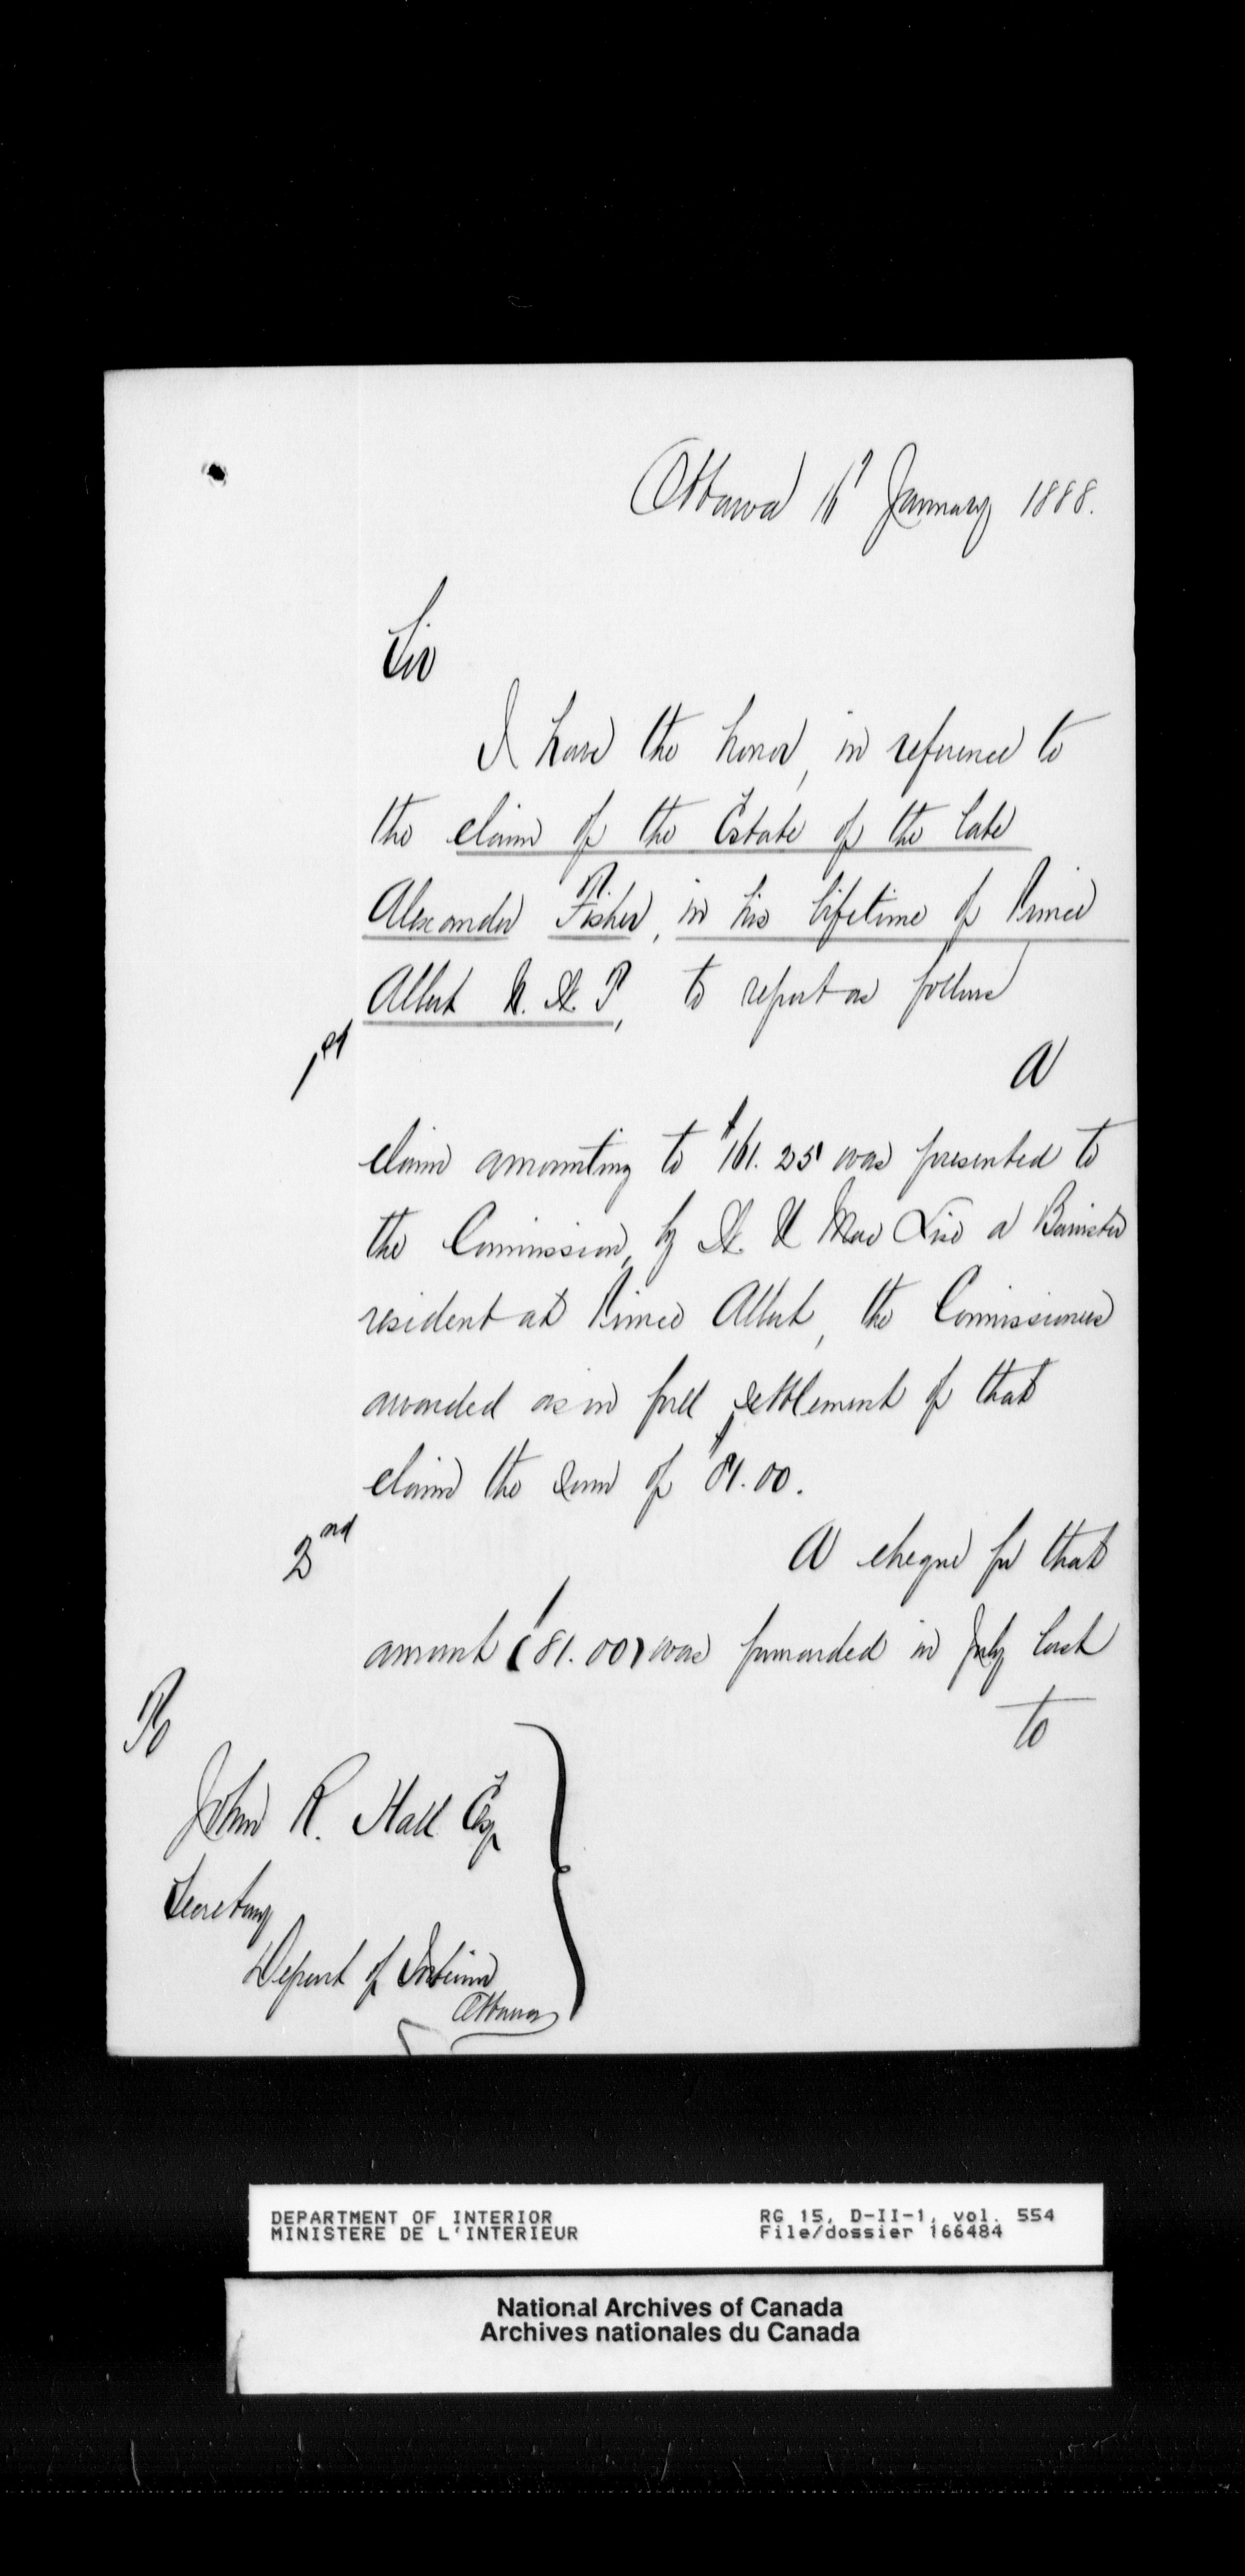 Ottawa 16' January 1888.
Sir
I have the honor, in reference to
the claim of the Estate of the late
Alexander R. Fisher, in his lifetime of Prince
Albert N. W. T, to report as follows
1st
A
claim amounting to $161.25 was presented to
the Commission, by Mac Lise a Barrister
resident at Prince Albert, the Commissioners
awarded as in full settlement of that
claim the sum of $81.00.
2nd
A cheque for that
amount ($81.00) was forwarded in July last
to
To
John R. Hall Esq
Secretary
Depart of Interior
Ottawa
DEPARTMENT OF INTERIOR
MINISTERE DE L'INTERIEUR
RG 15, D-II-1, vol. 554
File/dossier 166484
National Archives of Canada
Archives nationales du Canada